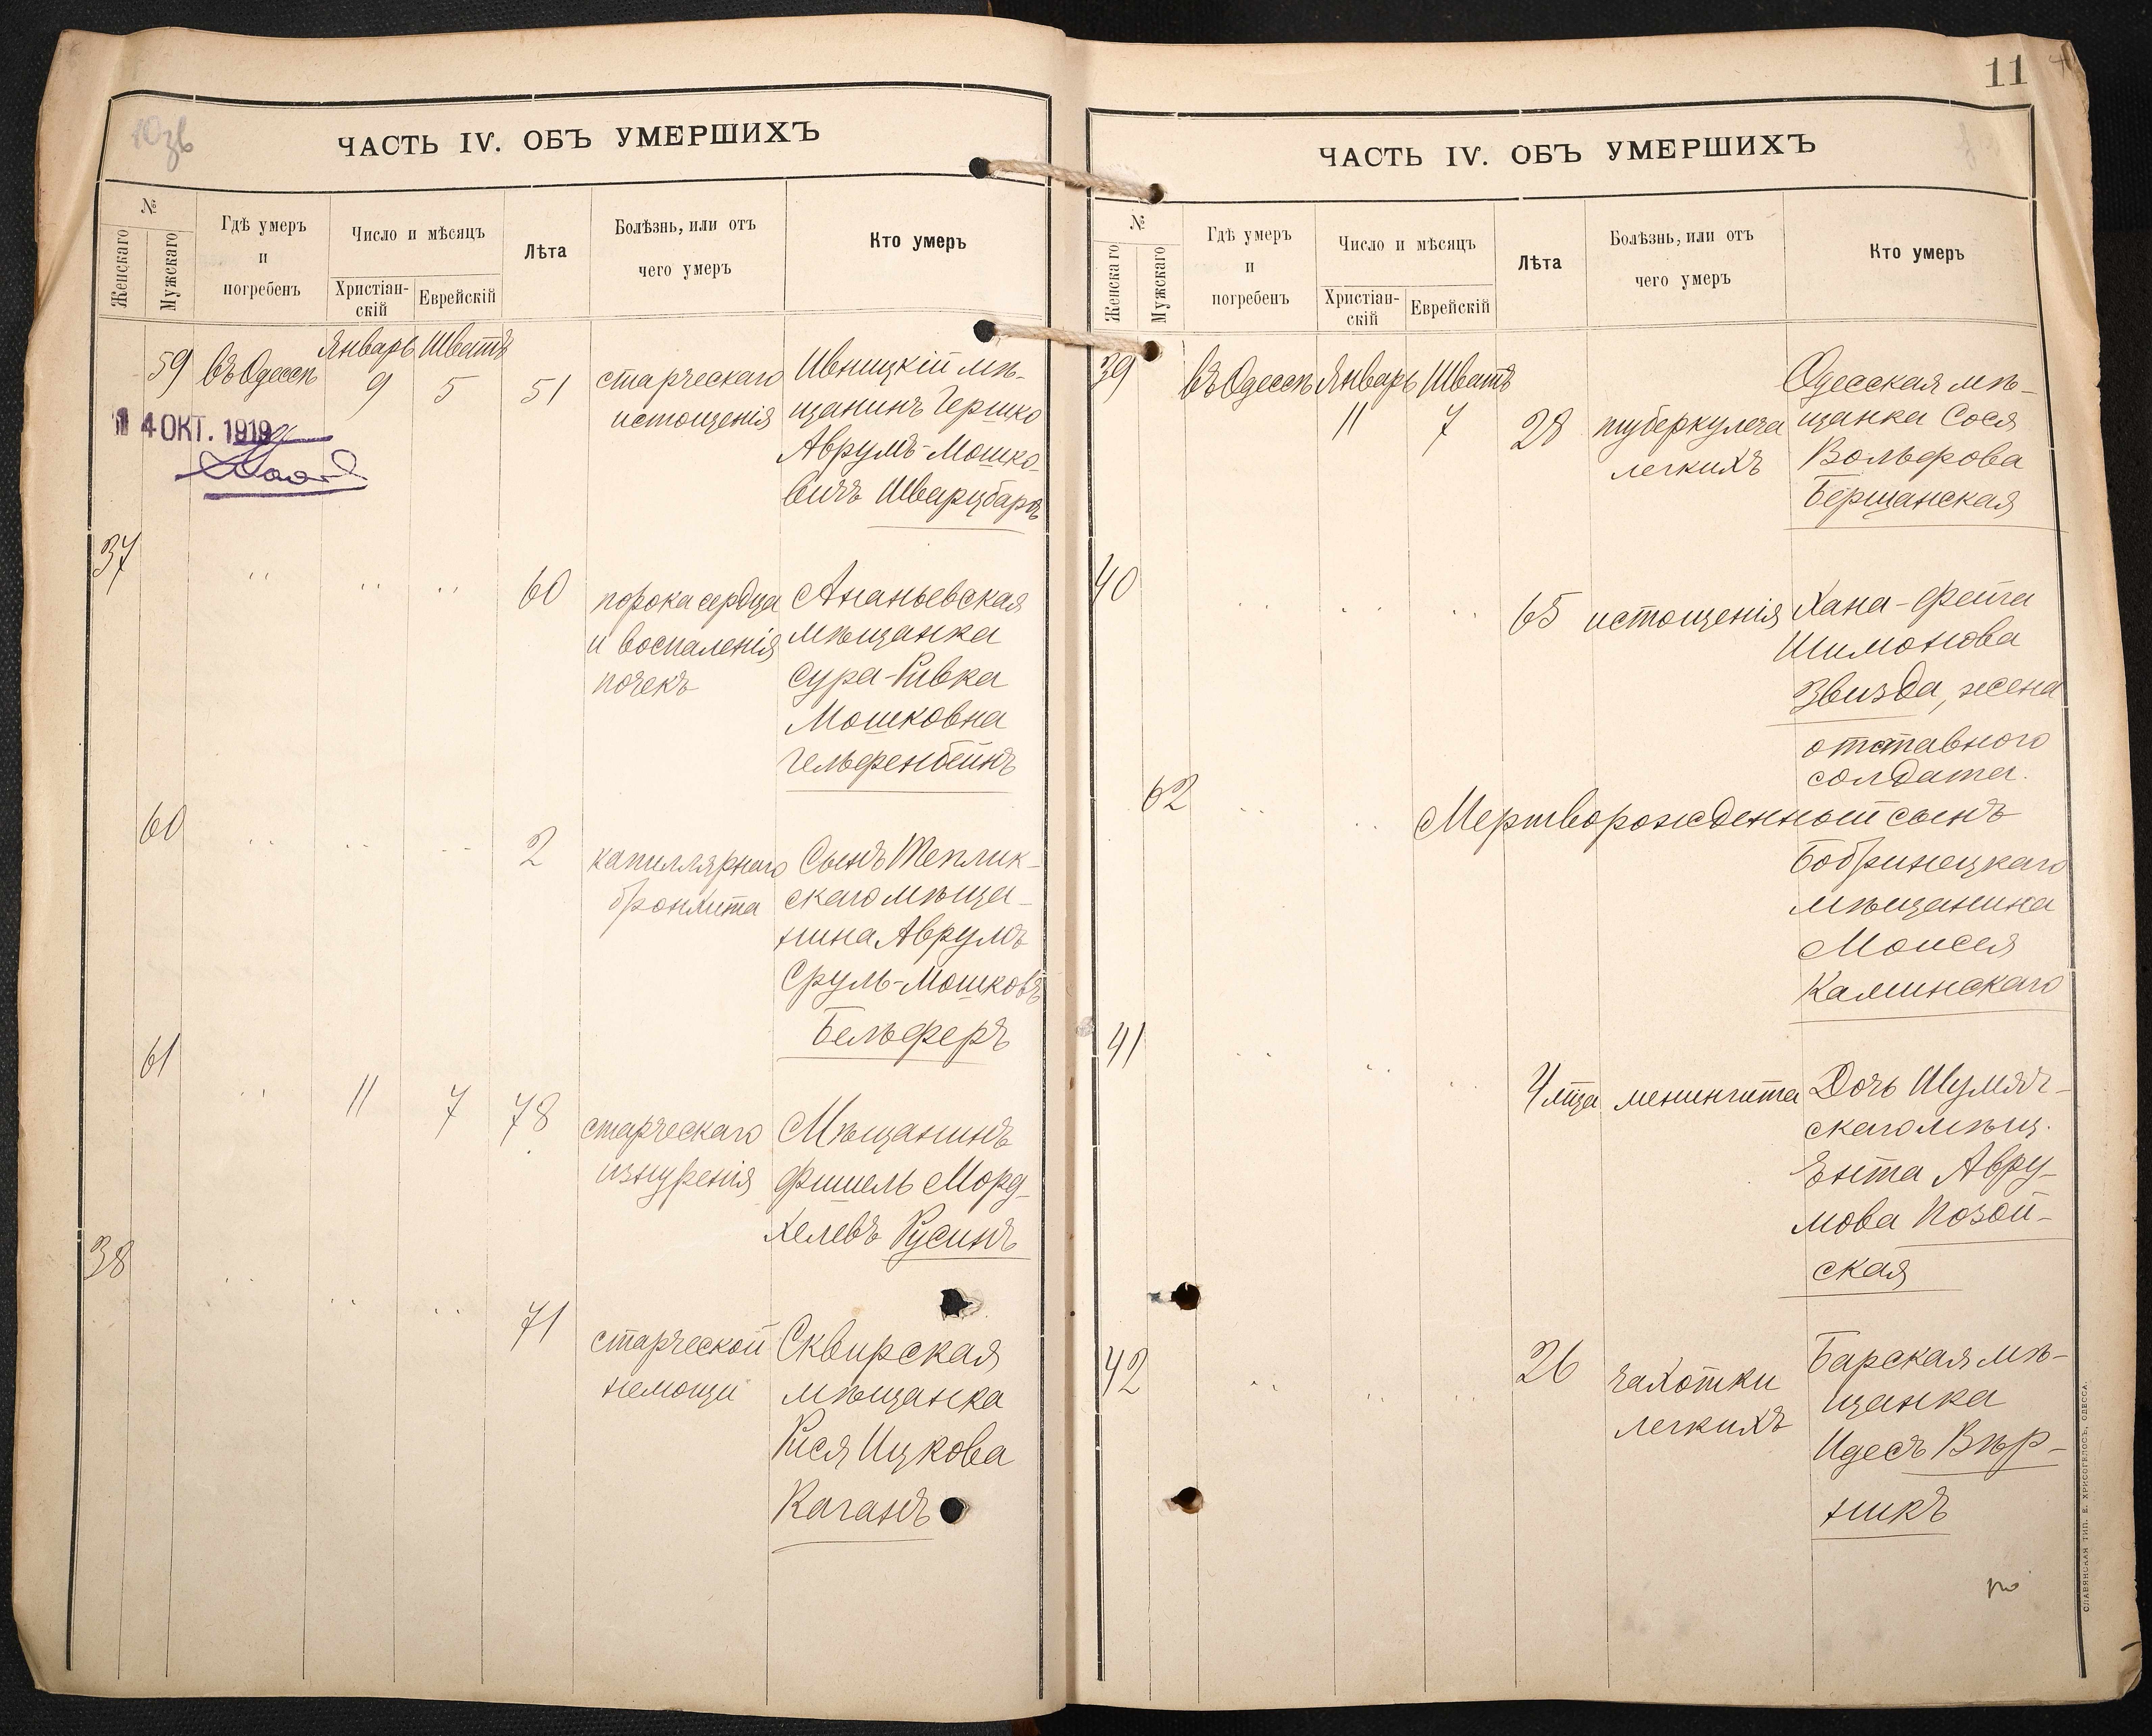 ЧАСТЬ IV. ОБЪ УМЕРШИХЪ
№
Женскаго
Мужскаго
Гдѣ умеръ
и
погребенъ
Число и мѣсяцъ
Христіан-
скій
Еврейскій
Лѣта
Болѣзнь, или отъ
чего умеръ
Кто умеръ
59 въ Одессѣ Январь 9 Шватъ 5 51 старческаго Ивницкій мѣ-
истощенія щанинъ Гершко
Аврумъ-Мошко-
вичъ Шварцбардъ
4 ОКТ. 1919
37 " " " 60 порока сердца Ананьевская
и воспаленія мѣщанка
почекъ Сура-Ривка
Мошковна
Гельфенбейнъ
60 " " " 2 капиллярнаго Сынъ Теплик-
бронхита скаго мѣща-
нина Аврумъ
Сруль-Мошковъ
Бельферъ
61 " 11 7 78 старческаго Мѣщанинъ
изнуренія Фишель Морд-
хелевъ Русинъ
38 " " " 71 старческой Сквирская
немощи мѣщанка
Рися Ицкова
Каганъ
11
ЧАСТЬ IV. ОБЪ УМЕРШИХЪ
№
Женскаго
Мужскаго
Гдѣ умеръ
и
погребенъ
Число и мѣсяцъ
Христіан-
скій
Еврейскій
Лѣта
Болѣзнь, или отъ
чего умеръ
Кто умеръ
39 въ Одессѣ Январь 11 Шватъ 7 28 туберкулеза Одесская мѣ-
легкихъ щанка Сося
Вольфова
Бершанская
40 " " " 65 истощенія Хана-Фейга
Шимонова
Звизда, жена
отставного
солдата.
62 " " Мертворожденный сынъ
Бобринецкаго
мѣщанина
Моисея
Каминскаго
41 " " " 4 мца менингита Дочь Шумяч-
скаго мѣщ.
Ента Авру-
мова Позой-
ская
42 " " " 26 чахотки Барская мѣ-
легкихъ щанка
Идесъ Вѣр-
никъ
СЛАВЯНСКАЯ ТИП. Е. ХРИСОГЕЛОСЪ, ОДЕССА.